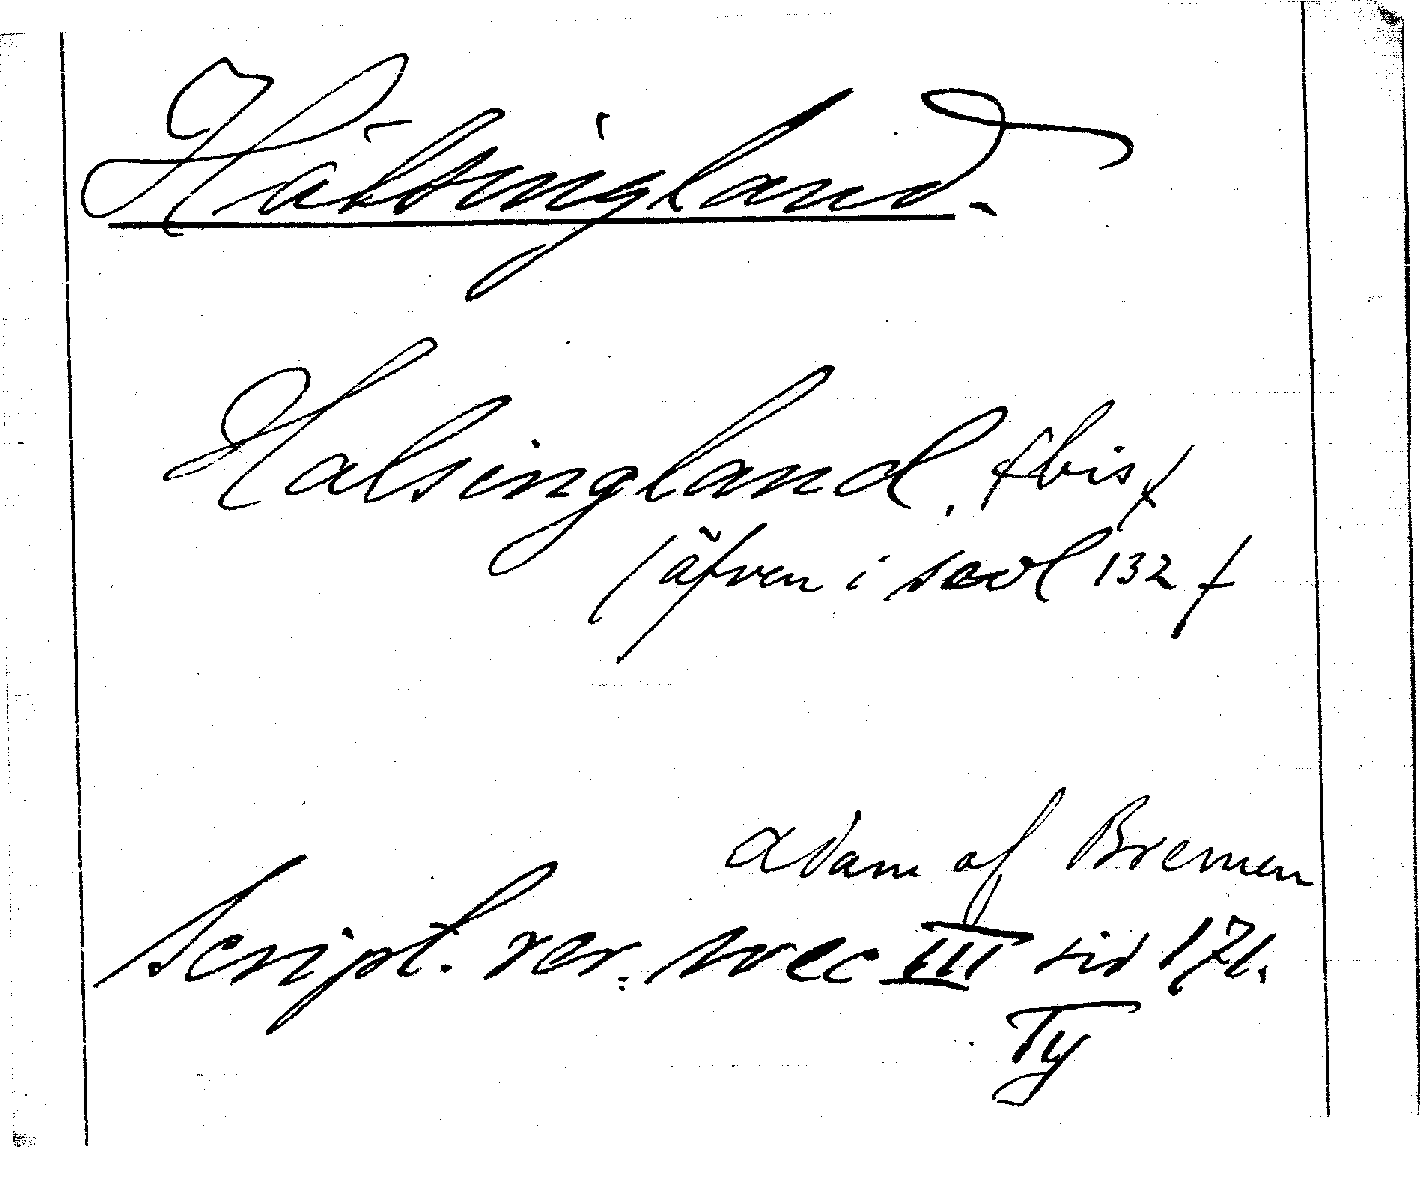 Hälsingland.
Halsingland. (bis)
(äfven i scol 132)
Adam af Bremen
Script. rer. svec III sid 171.
Ty